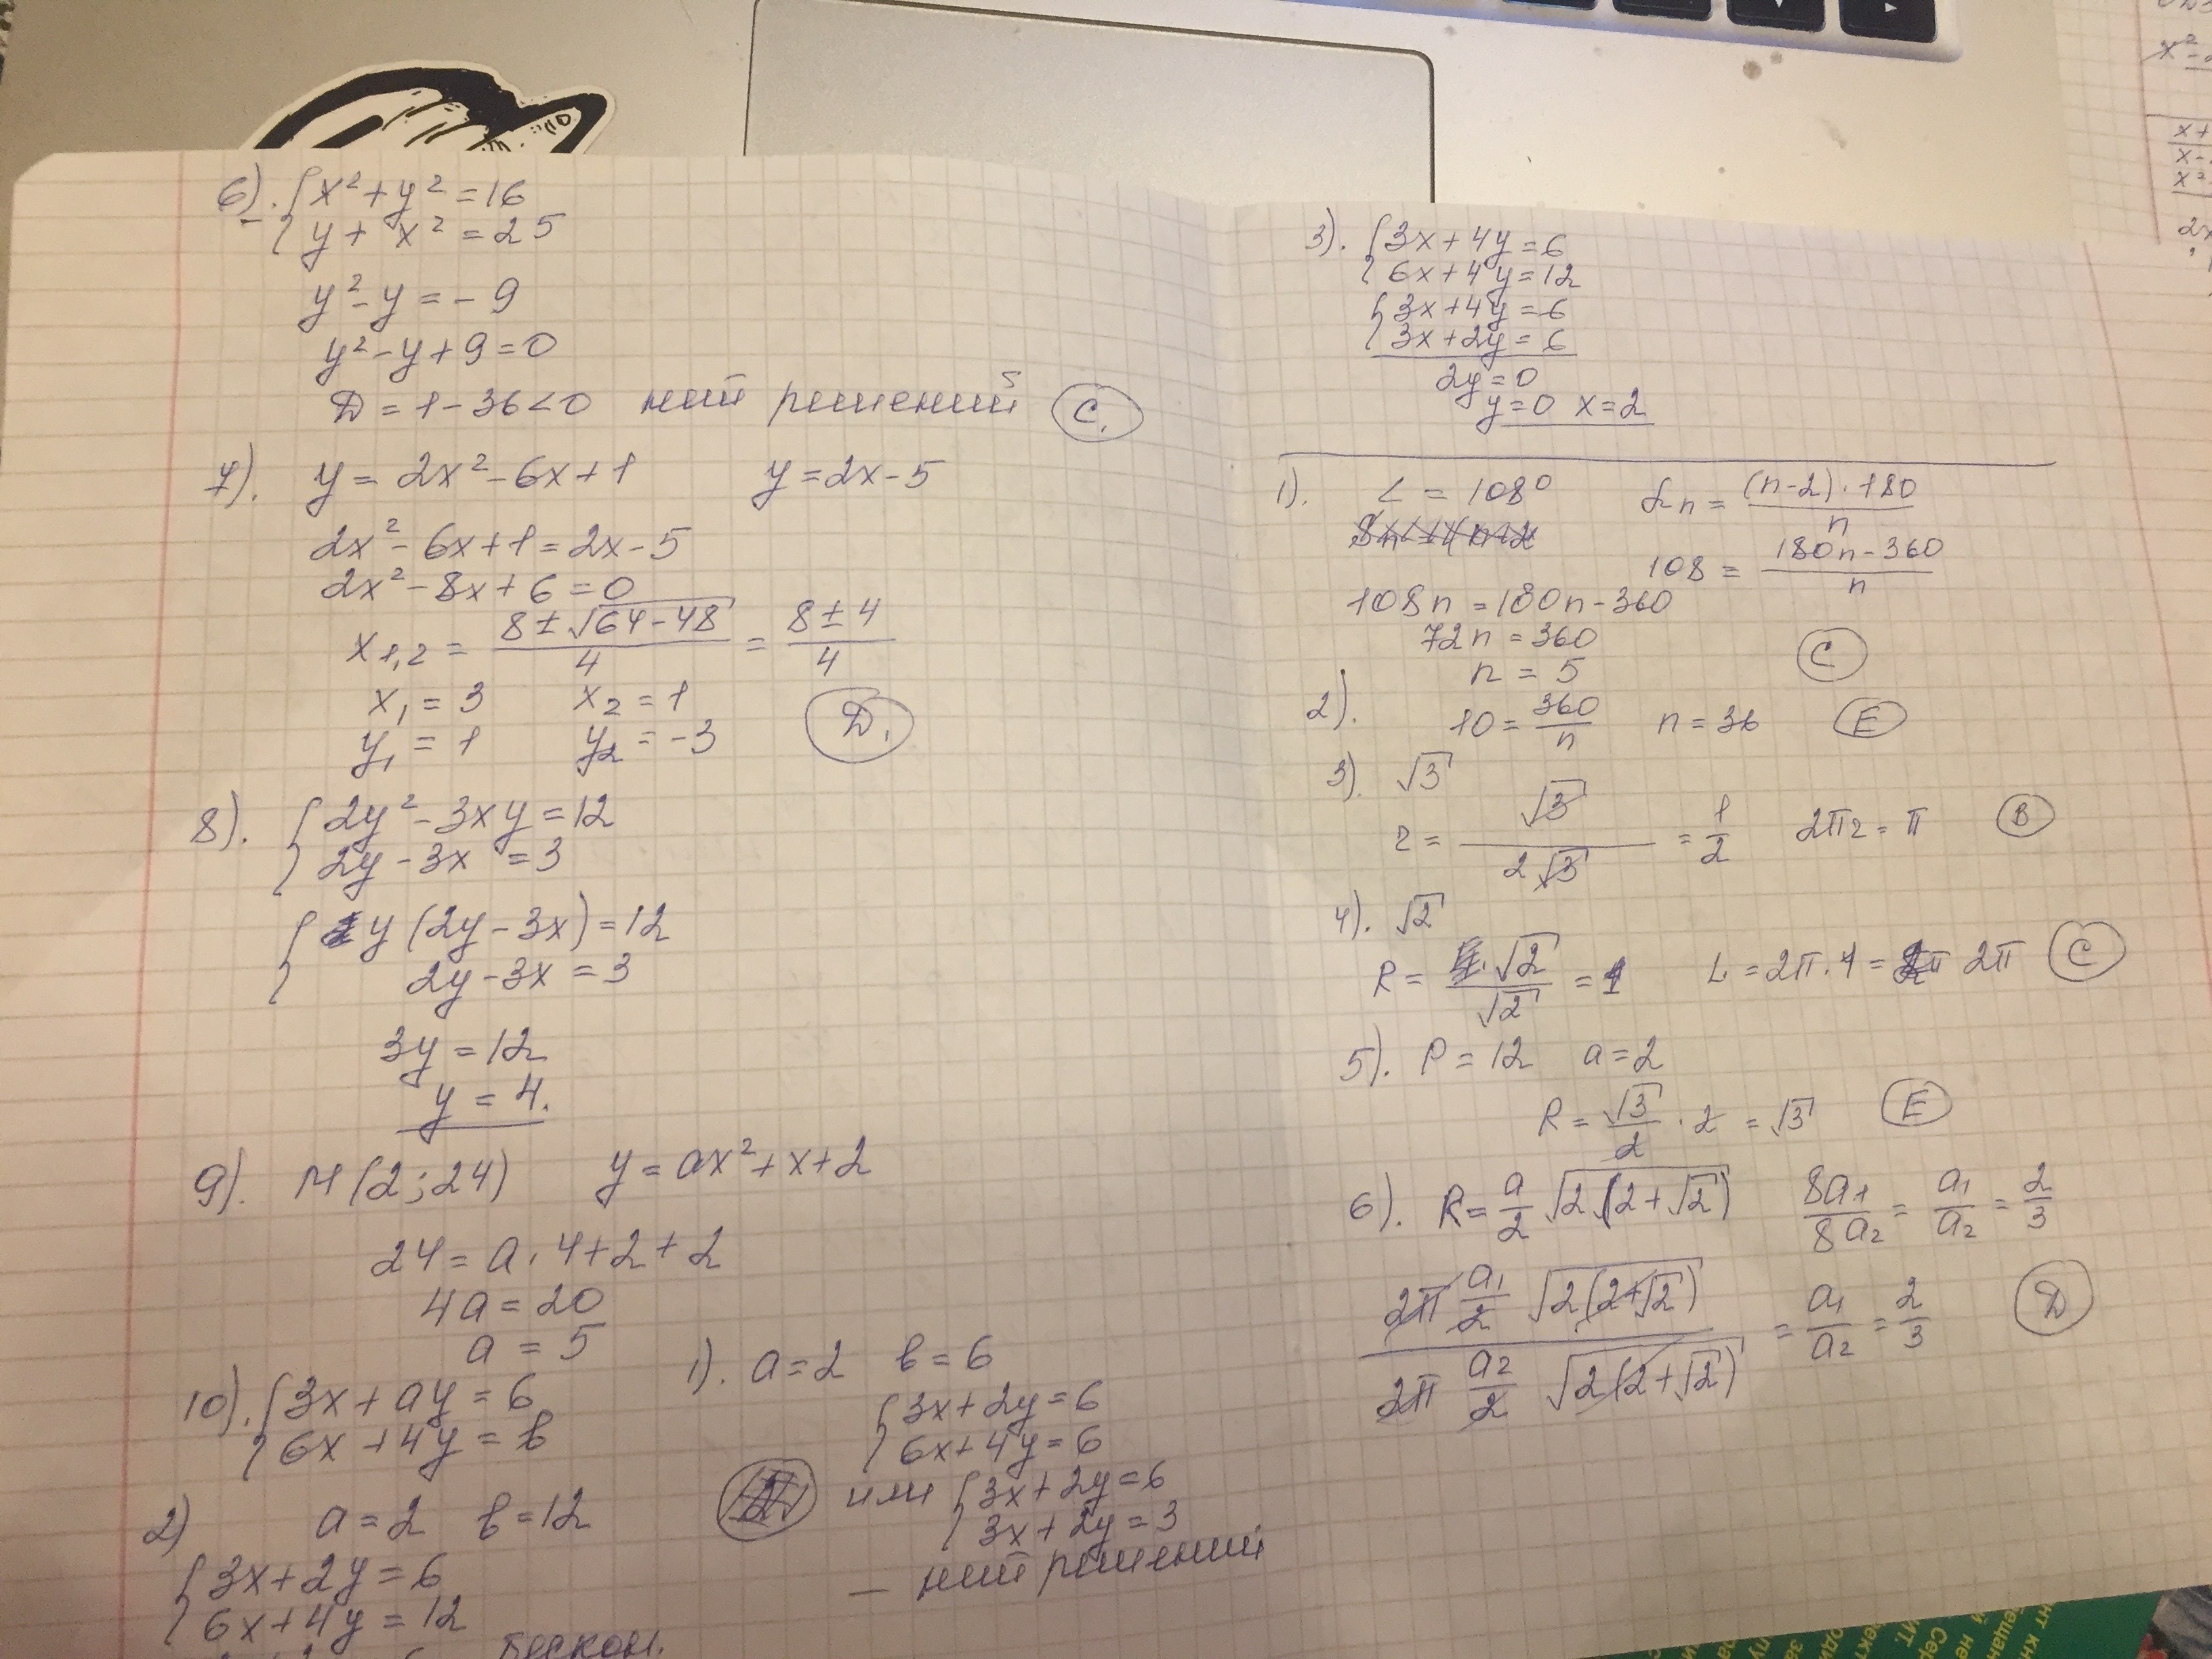 6). { x² + y² = 16
- { y + x² = 25
y² - y = - 9
y² - y + 9 = 0
D = 1 - 36 < 0 нет решений C.
7). y = 2x² - 6x + 1 y = 2x - 5
2x² - 6x + 1 = 2x - 5
2x² - 8x + 6 = 0
x1,2 = (8 ± √(64 - 48)) / 4 = (8 ± 4) / 4
x1 = 3 x2 = 1
y1 = 1 y2 = -3 D.
8). { 2y² - 3xy = 12
{ 2y - 3x = 3
{ y (2y - 3x) = 12
{ 2y - 3x = 3
3y = 12
y = 4.
9). M (2; 24) y = ax² + x + 2
24 = a · 4 + 2 + 2
4a = 20
a = 5
10). { 3x + ay = 6
{ 6x + 4y = b
1). a = 2 b = 6
{ 3x + 2y = 6
{ 6x + 4y = 6
или { 3x + 2y = 6
{ 3x + 2y = 3
- нет решений
2) a = 2 b = 12
{ 3x + 2y = 6
{ 6x + 4y = 12
3). { 3x + 4y = 6
{ 6x + 4y = 12
{ 3x + 4y = 6
{ 3x + 2y = 6
2y = 0
y = 0 x = 2
1). ∠ = 108° αn = ((n-2) · 180) / n
108 = (180n - 360) / n
108n = 180n - 360
72n = 360
n = 5 C
2). 10 = 360 / n n = 36 E
3). √3
r = √3 / 2√3 = 1/2 2πr = π B
4). √2
R = √2 / √2 = 1 L = 2π · 1 = 2π C
5). P = 12 a = 2
R = √3/2 · 2 = √3 E
6). R = a/2 √(2(2+√2)) 8a1 / 8a2 = a1 / a2 = 2/3
(2π a1/2 √(2(2+√2))) / (2π a2/2 √(2(2+√2))) = a1 / a2 = 2/3 D